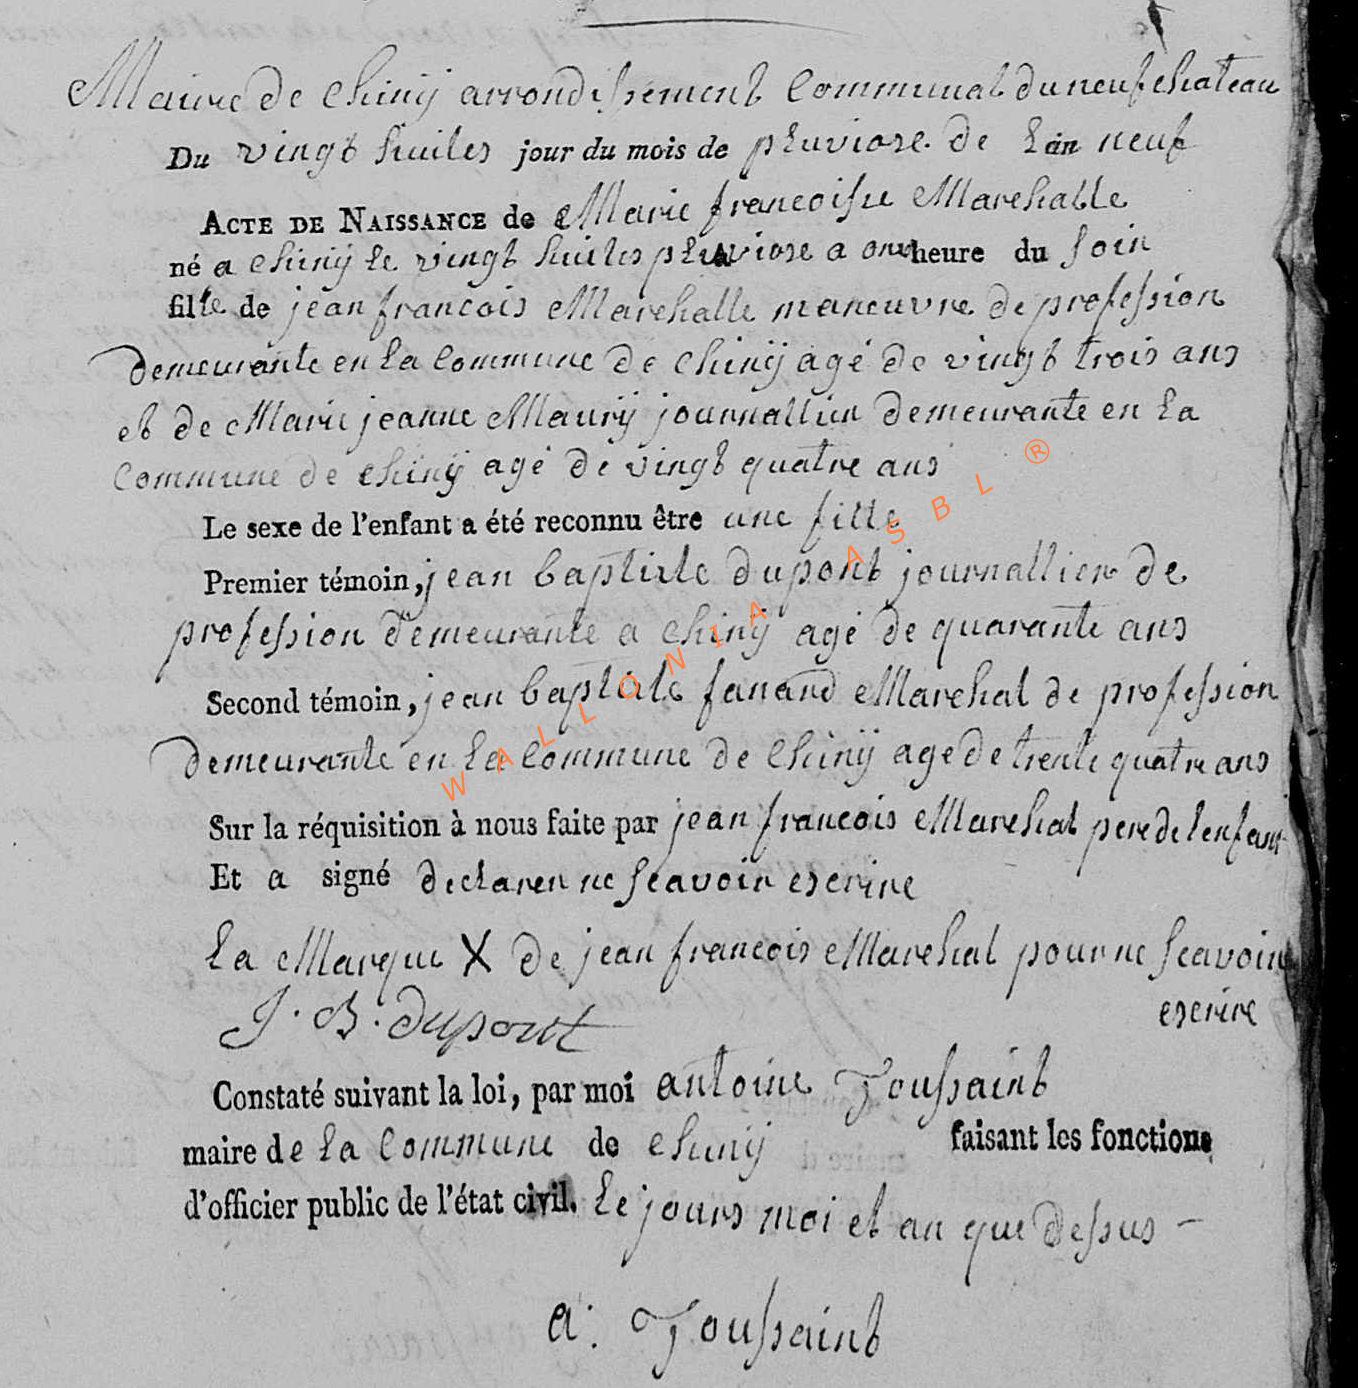 Maire de chinÿ arrondissement Communal du neufchateau
Du vingt huites jour du mois de pluviose de L'an neuf
ACTE DE NAISSANCE de Marie francoisse Marchalle
né a chinÿ Le vingt huites pluviose a onze heure du soir
fille de jean francois Marchalle maneuvre de profession
demeurante en La Commune de chinÿ agé de vingt trois ans
et de Marie jeanne Maurÿ journallier demeurante en La
Commune de chinÿ agé de vingt quatre ans
Le sexe de l'enfant a été reconnu être une fille
Premier témoin, jean baptiste dupont journallier de
profession demeurante a chinÿ agé de quarante ans
Second témoin, jean baptiste fanard Marchal de profession
demeurante en La Commune de Chinÿ age de trente quatre ans
Sur la réquisition à nous faite par jean francois Marchal pere de lenfant
Et a signé declarer ne scavoir escrire
La Marque X de jean francois Marchal pour ne scavoir
escrire
J. B. dupont
Constaté suivant la loi, par moi antoine Toussaint
maire de La Commune de chinÿ faisant les fonctions
d'officier public de l'état civil. Le jours moi et an que dessus -
a: Toussaint
WALLONIA ASBL ®